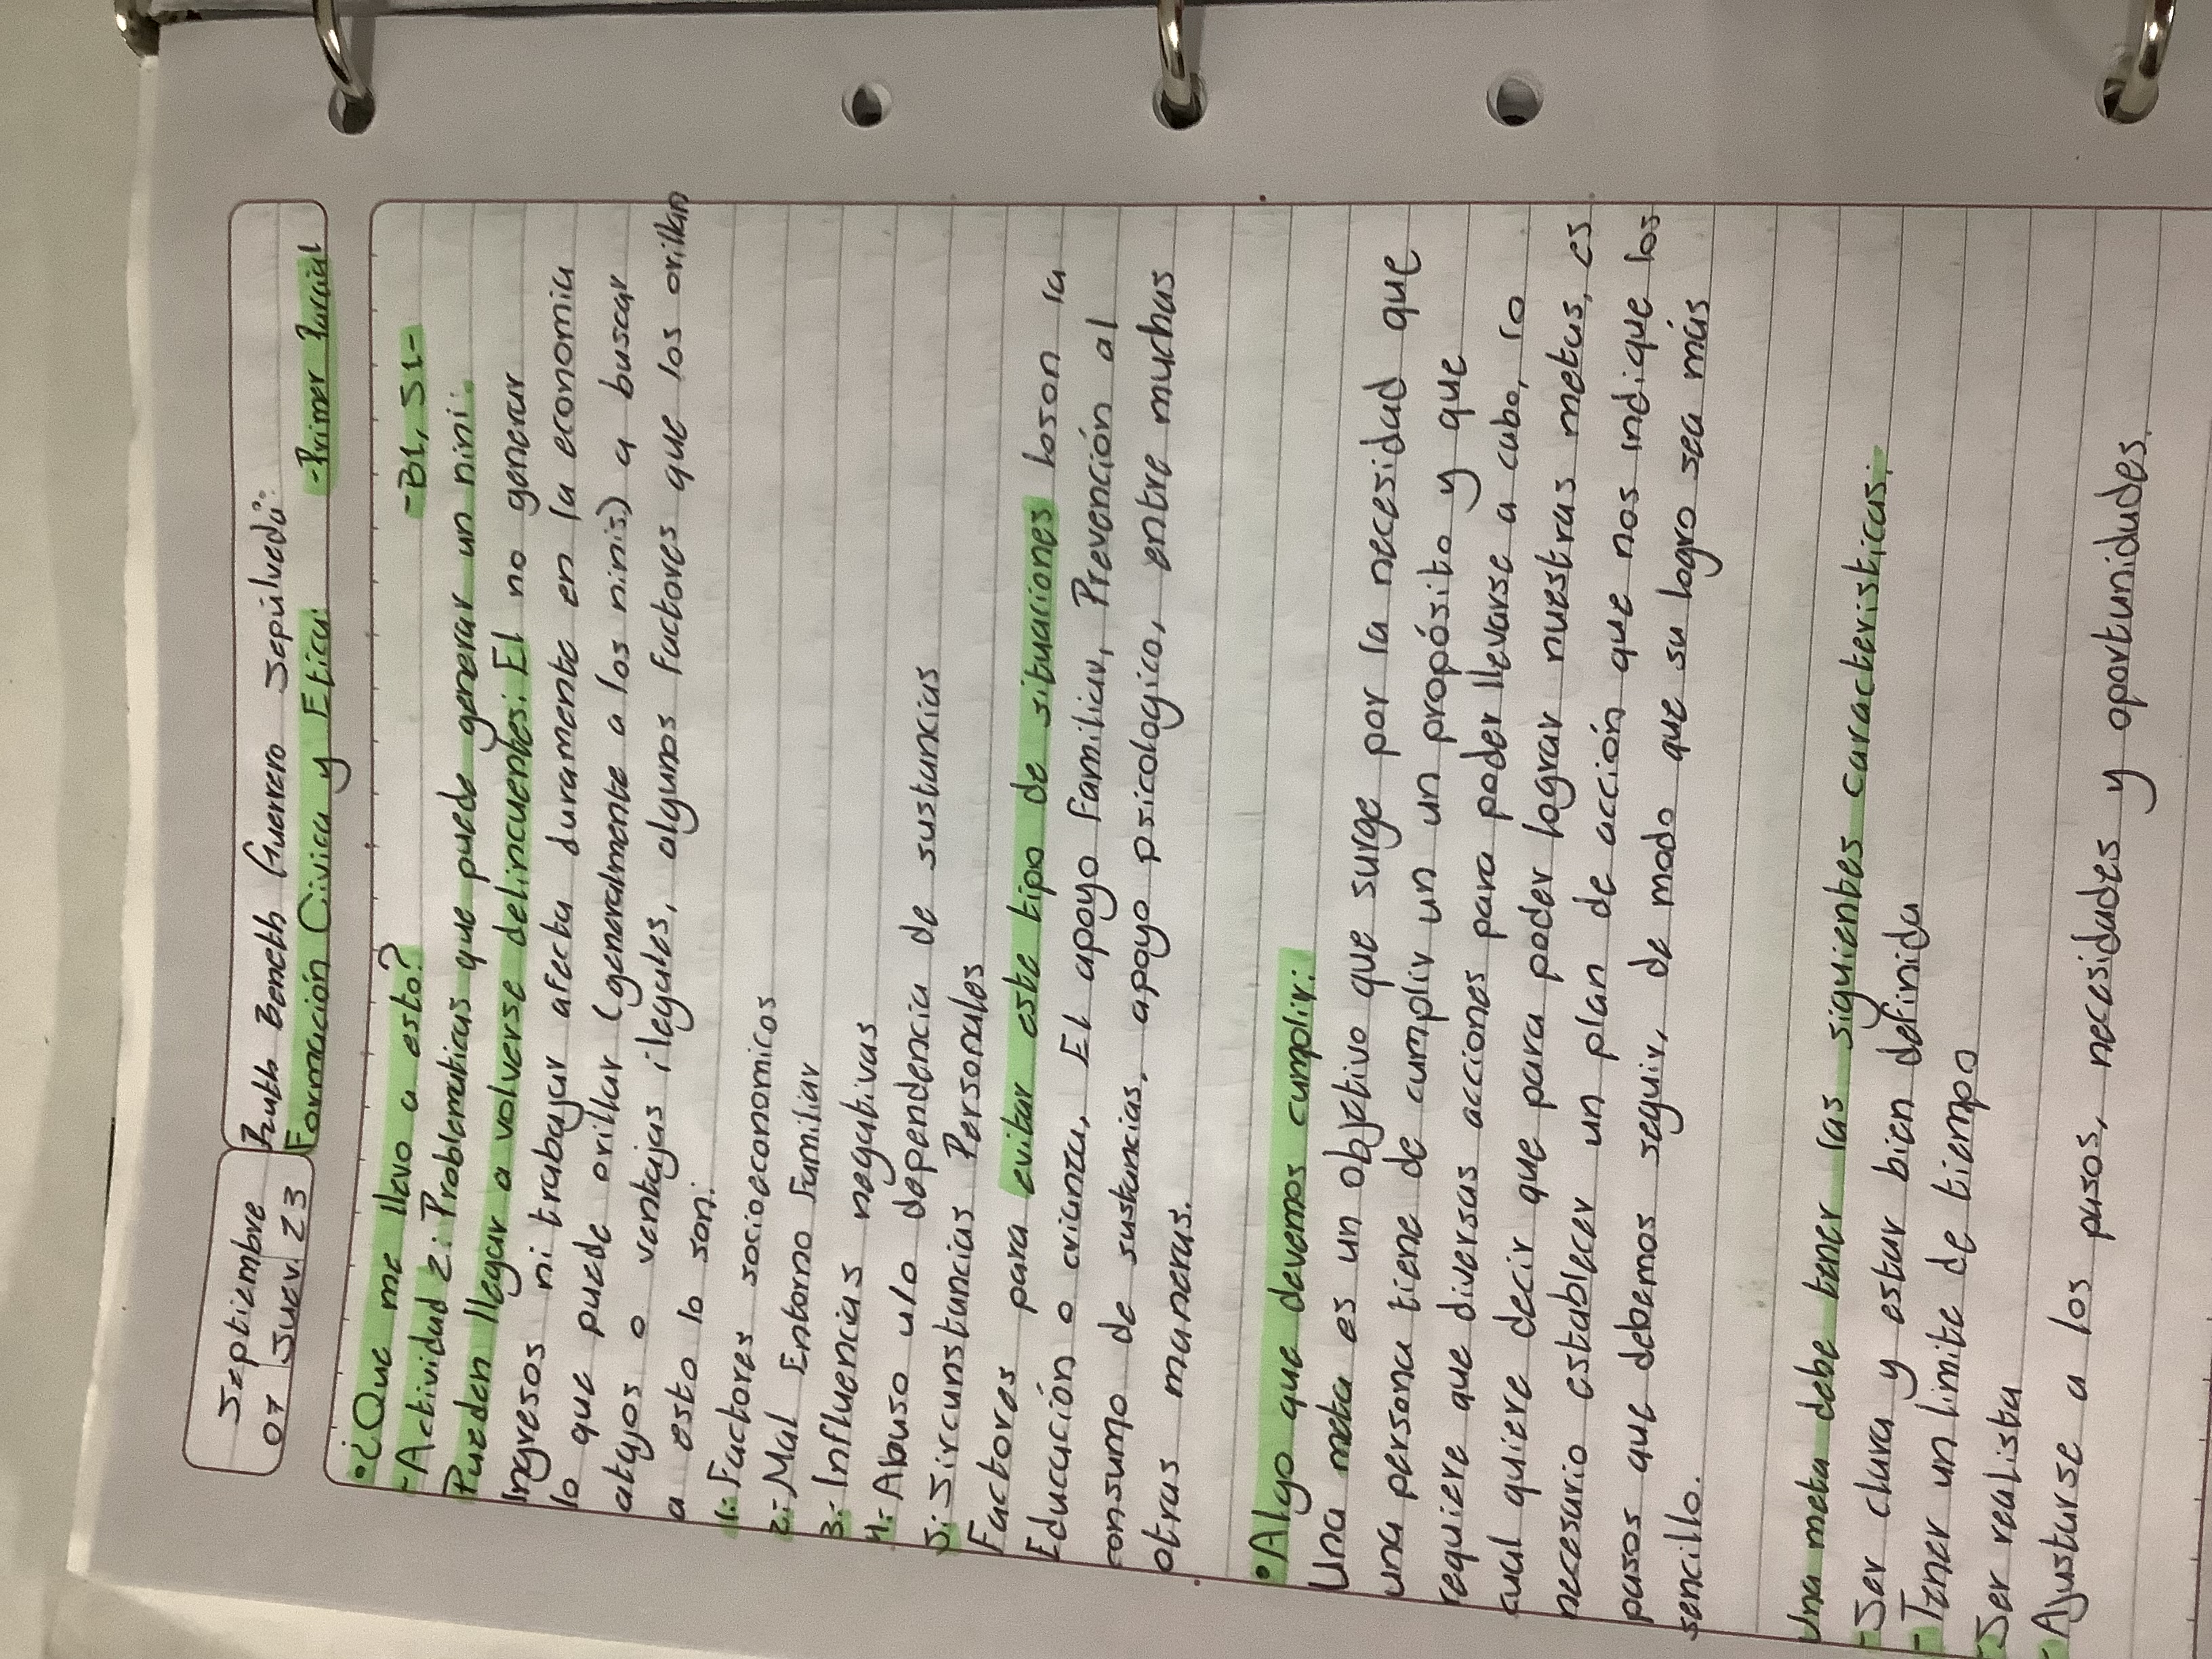 Septiembre
07 Juev. 23
Ruth Beneth Guerrero Sepúlveda:
Formación Civica y Etica: -Primer Parcial
•¿Que me llevo a esto? -B1, S1-
-Actividad 2: Problematicas que puede generar un nini:
Pueden llegar a volverse delincuentes: El no generar
Ingresos ni trabajar afecta duramente en la economia
lo que puede orillar (generalmente a los ninis) a buscar
atajos o ventajas ilegales, algunos factores que los orillan
a esto lo son:
1.- Factores socioeconomicos
2.- Mal Entorno Familiar
3.- Influencias negativas
4.- Abuso u/o dependencia de sustancias
5.- Sircunstancias Personales
Factores para evitar este tipo de situaciones loson la
Educación o crianza, El apoyo familiar, Prevención al
consumo de sustancias, apoyo psicologico, entre muchas
otras maneras.
•Algo que devemos cumplir:
Una meta es un objetivo que surge por la necesidad que
una persona tiene de cumplir un un propósito y que
requiere que diversas acciones para poder llevarse a cabo, lo
cual quiere decir que para poder lograr nuestras metas, es
necesario establecer un plan de acción que nos indique los
pasos que debemos seguir, de modo que su logro sea más
sencillo.
Una meta debe tener las siguientes caracteristicas:
-Ser clara y estar bien definida
-Tener un limite de tiempo
-Ser realista
-Ajustarse a los pasos, necesidades y oportunidades.